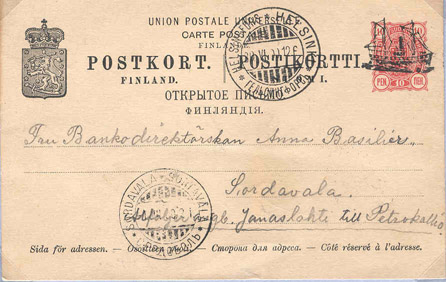 UNION POSTALE UNIVERSELLE
CARTE POSTALE
FINLANDE
POSTKORT. POSTIKORTTI.
FINLAND. SUOMI.
ОТКРЫТОЕ ПИСЬМО
ФИНЛЯНДІЯ.
PEN. 10 ПЕН.
HELSINGFORS HELSINKI
Fru Bankodirektörskan Anna Basilier
Sordavala.
SORDAVALA SORTAVALA
СЕРДОБОЛЬ
till
Sida för adressen. — Osoitteen puoli. — Сторона для адреса. — Côté réservé à l'adresse.